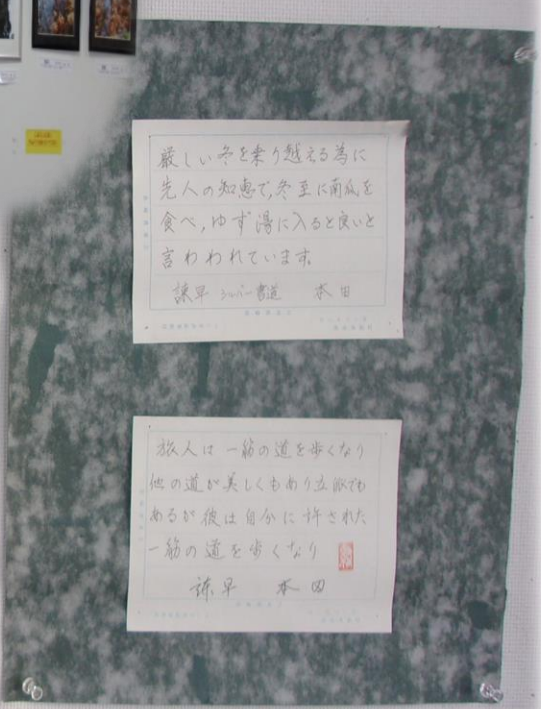 厳しい冬を乗り越える為に
先人の知恵で、冬至に南瓜を
食べ、ゆず湯に入ると良いと
言わわれています。
諫早 シルバー書道 本田
旅人は 一筋の道を歩くなり
他の道が美しくもあり立派でも
あるが彼は自分に許された
一筋の道を歩くなり
諫早 本田